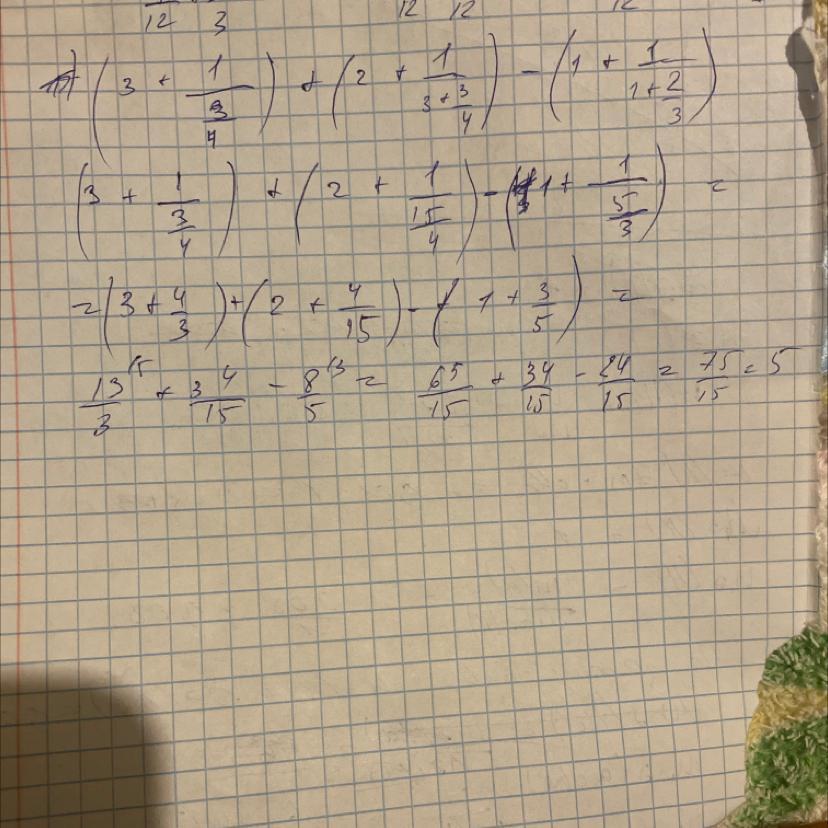 12 3 12 12 12
(3 + 1/(3/4)) + (2 + 1/(3 + 3/4)) - (1 + 1/(1 + 2/3))
(3 + 1/(3/4)) + (2 + 1/(15/4)) - (1 + 1/(5/3)) =
= (3 + 4/3) + (2 + 4/15) - (1 + 3/5) =
13/3 ^15 + 34/15 - 8/5 ^13 = 65/15 + 34/15 - 24/15 = 75/15 = 5